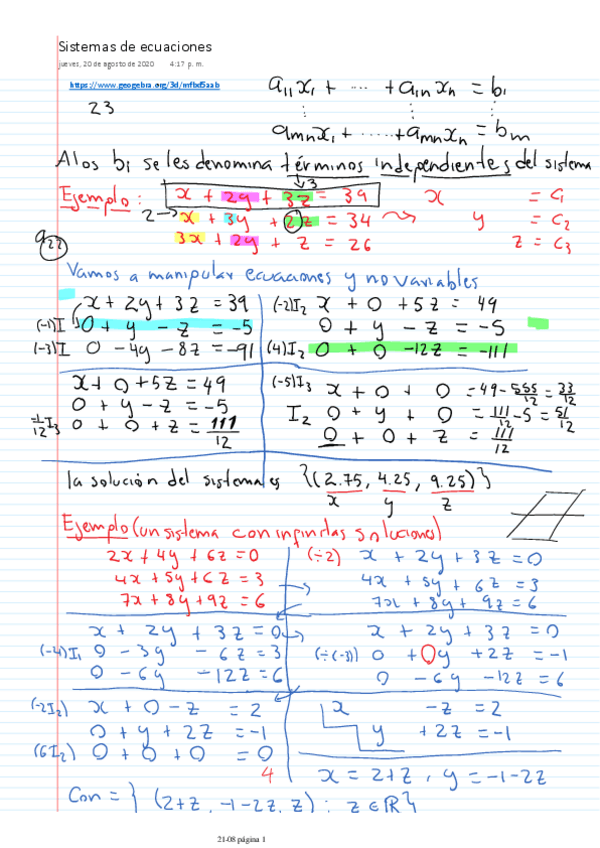 Sistemas de ecuaciones
jueves, 20 de agosto de 2020 4:17 p. m.
https://www.geogebra.org/3d/mfbd5aab
23
a₁₁x₁ + ... + a₁ₙxₙ = b₁
⋮ ⋮
aₘₙx₁ + ..... + aₘₙxₙ = bₘ
A los bᵢ se les denomina términos independientes del sistema
Ejemplo: x + 2y + 3z = 39 x = C₁
3
2→ x + 3y + 2z = 34 ⇝ y = C₂
a₂₂ 3x + 2y + z = 26 z = C₃
Vamos a manipular ecuaciones y no variables
x + 2y + 3z = 39
(-1)I 0 + y - z = -5
(-3)I 0 - 4y - 8z = -91
(-2)I₂ x + 0 + 5z = 49
0 + y - z = -5
(4)I₂ 0 + 0 -12z = -111
x + 0 + 5z = 49
0 + y - z = -5
-1/12 I₃ 0 + 0 + z = 111/12
(-5)I₃ x + 0 + 0 = 49 - 555/12 = 33/12
I₂ 0 + y + 0 = 111/12 - 5 = 51/12
0 + 0 + z = 111/12
la solución del sistema es {(2.75, 4.25, 9.25)}
x y z
Ejemplo (un sistema con infinitas soluciones)
2x + 4y + 6z = 0
4x + 5y + 6z = 3
7x + 8y + 9z = 6
(÷2) x + 2y + 3z = 0
4x + 5y + 6z = 3
7x + 8y + 9z = 6
x + 2y + 3z = 0
(-4)I₁ 0 - 3y - 6z = 3
0 - 6y - 12z = 6
x + 2y + 3z = 0
(÷(-3)) 0 + 0y + 2z = -1
0 - 6y - 12z = 6
(-2I₂) x + 0 - z = 2
0 + y + 2z = -1
(6I₂) 0 + 0 + 0 = 0
4
x - z = 2
y + 2z = -1
x = 2+z , y = -1-2z
Con = { (2+z, -1-2z, z) : z ∈ ℝ}
21-08 página 1